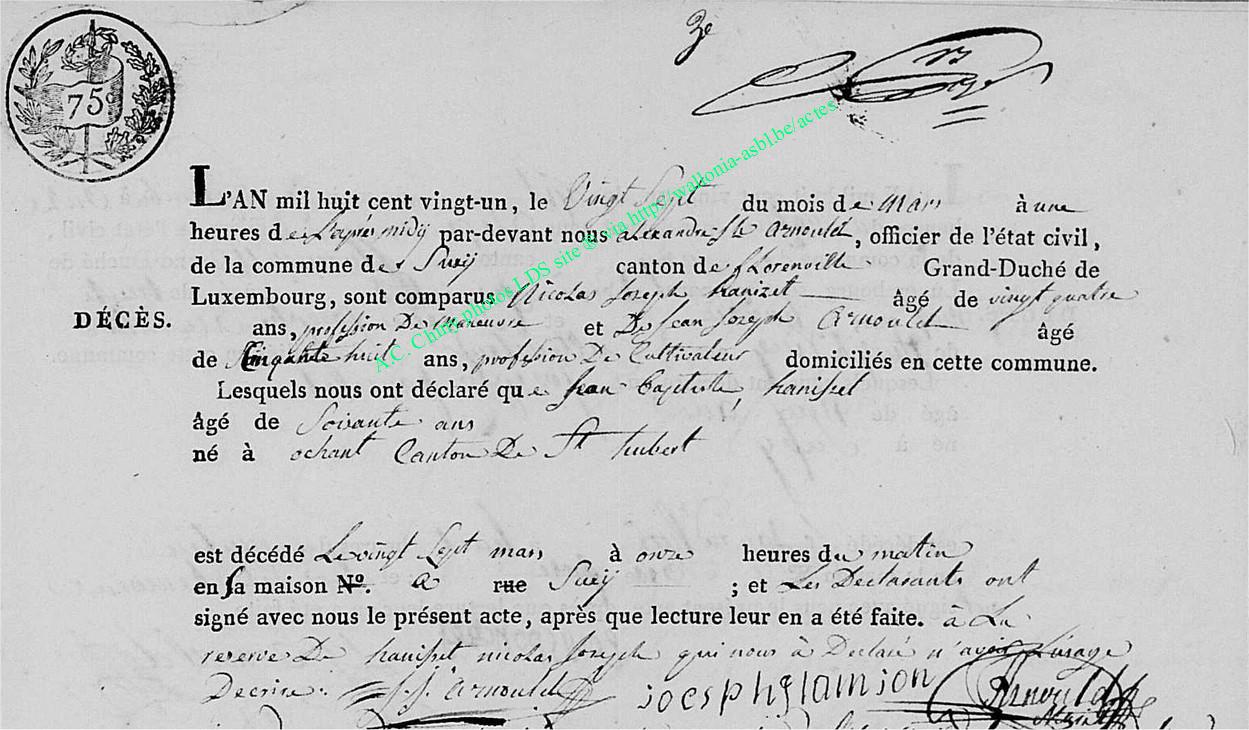 75c
3e
A.C. Chuty photos LDS site © via http://wallonia-asbl.be/actes
L'AN mil huit cent vingt-un, le Vingt Sept du mois de mars à une
heures de L'aprés midy par-devant nous alexandre arnoulet, officier de l'état civil,
de la commune de Suxÿ canton de florenville Grand-Duché de
Luxembourg, sont comparus Nicolas Joseph hanizet âgé de vingt quatre
DÉCÈS.
ans, profession De manœuvre et De Jean Joseph Arnoulet âgé
de Cinquante huit ans, profession De Cultivateur domiciliés en cette commune.
Lesquels nous ont déclaré que Jean Baptiste hanisset
âgé de Soixante ans
né à ochant Canton De St hubert
est décédé Le vingt Sept mars à onze heures du matin
en sa maison No. a rue Suxÿ ; et Les Declarants ont
signé avec nous le présent acte, après que lecture leur en a été faite. à La
reserve De hanisset nicolas Joseph qui nous à Declaré n'avoir L'usage
Decrire. J. J. Arnoulet joesph glamion Arnoulet